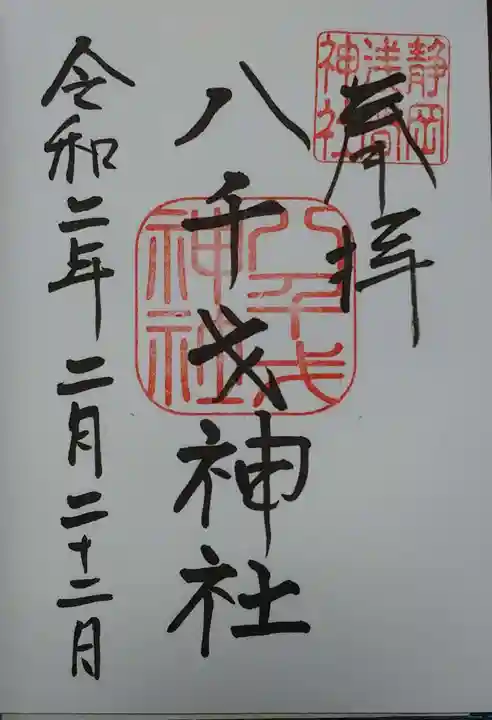 静岡
浅間
神社
奉拝
八千戈神社
八千戈
神社
令和二年二月二十二日